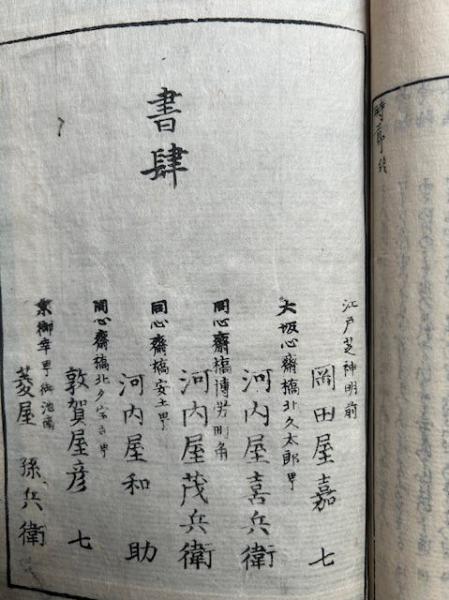 書肆
江戸芝神明前
岡田屋嘉七
大坂心齋橋北久太郎甼
河内屋喜兵衛
同心齋橋博労町角
河内屋茂兵衛
同心齋橋安土甼
河内屋和助
同心齋橋北
敦賀屋彦七
京御幸甼御池南
菱屋孫兵衛